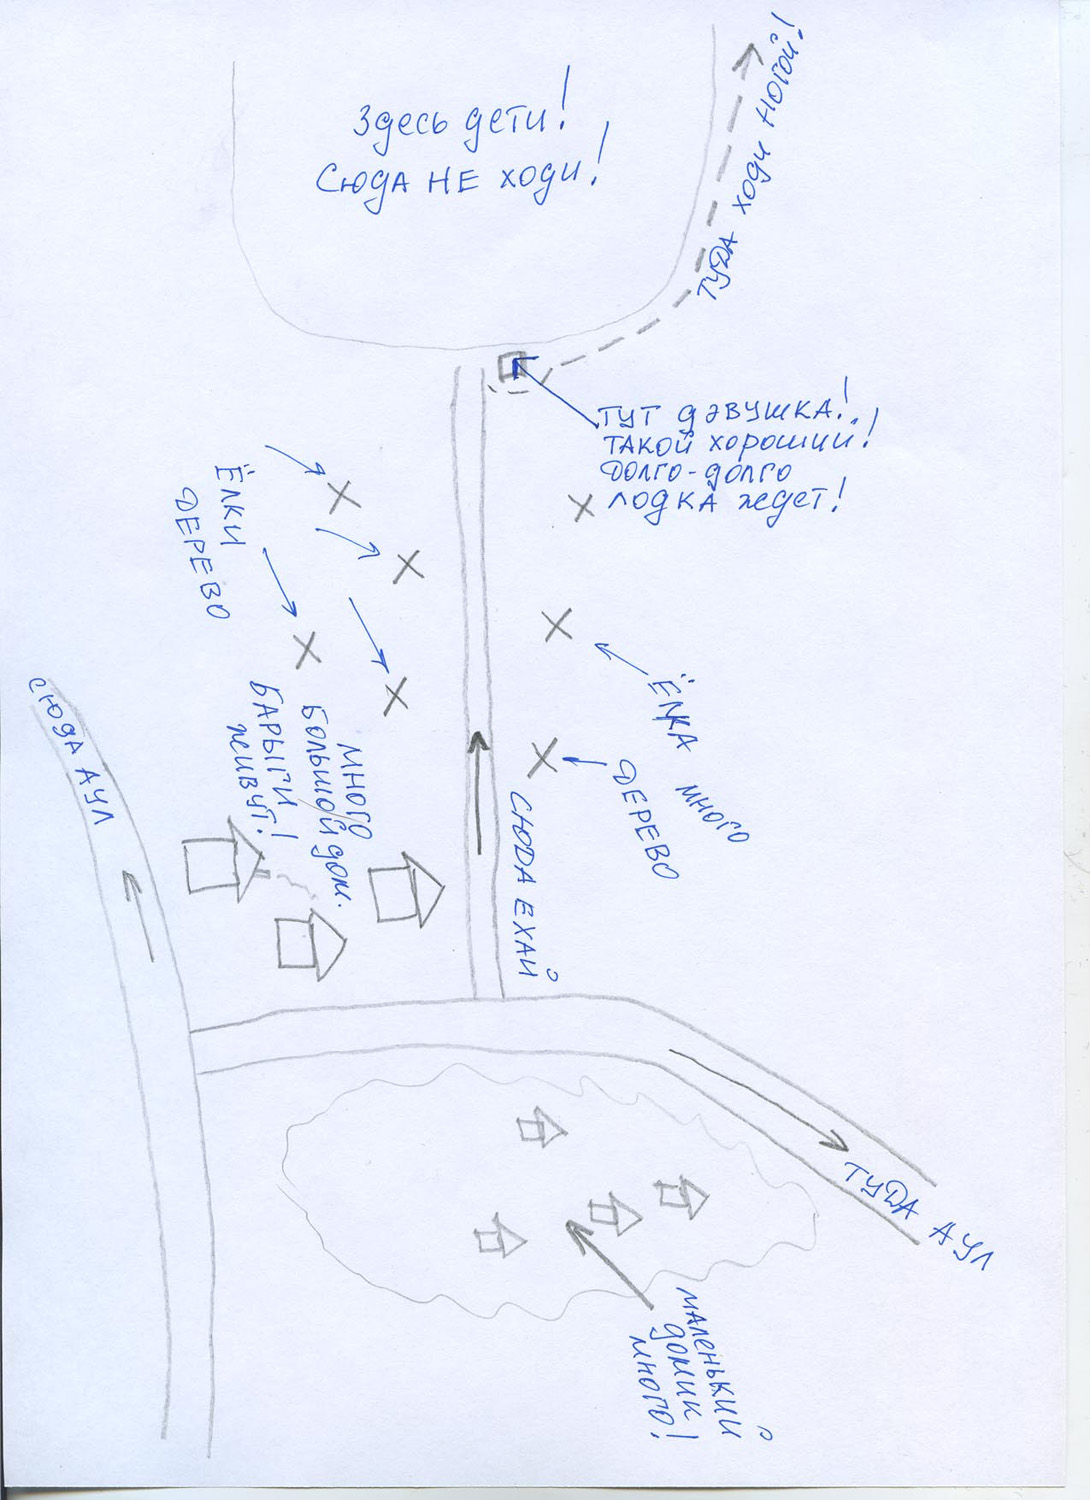 Здесь дети!
Сюда не ходи!
Туда ходи ногой!
Тут дэвушка!
Такой хороший!
Долго-долго
лодка ждет!
Ёлки
дерево
Ёлка много
дерево
Много
большой дом.
Барыги
живут!
Сюда аул
Сюда ехай
Туда аул
Маленький
домик
много!